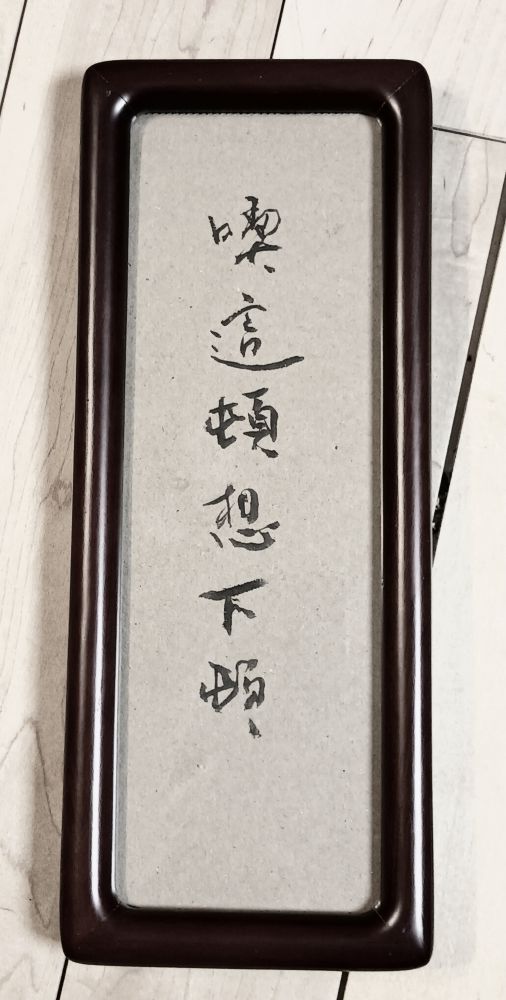 喫這頓想下頓